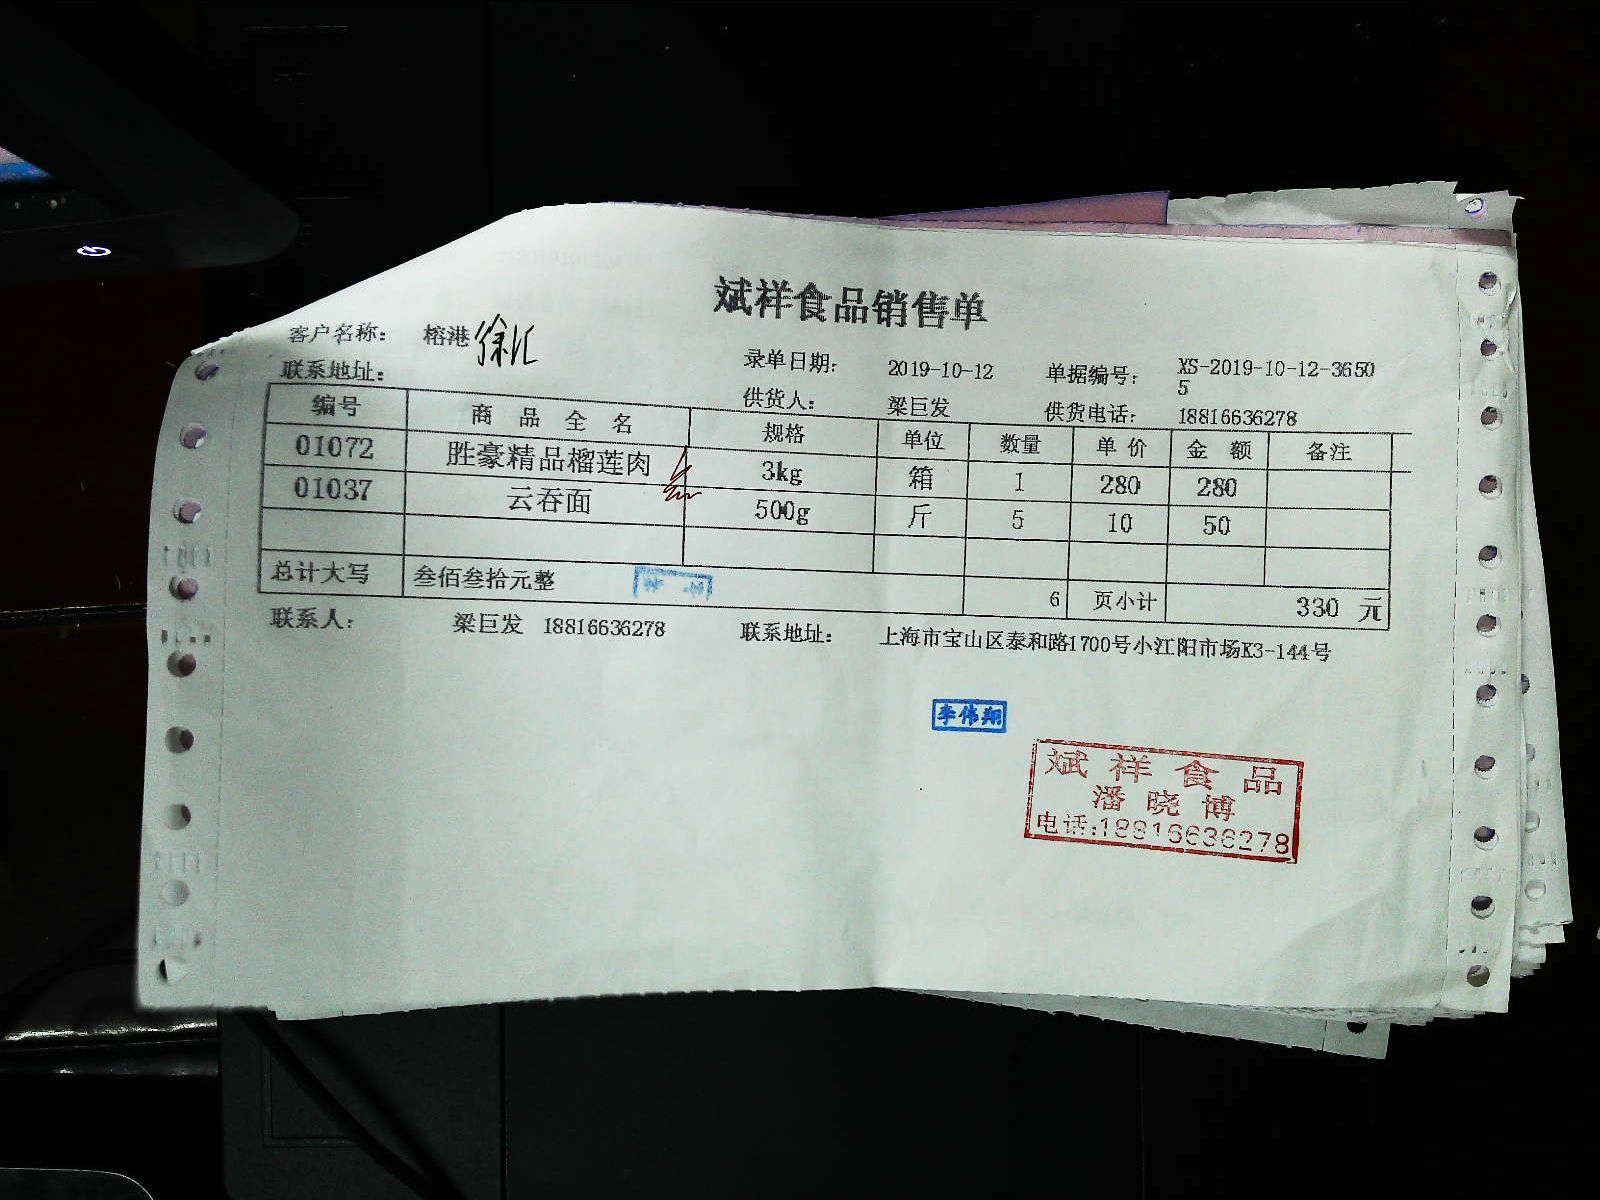 斌祥食品销售单
客户名称： 榕港 徐汇
录单日期： 2019-10-12 单据编号： XS-2019-10-12-36505
联系地址：
供货人： 梁巨发 供货电话： 18816636278
编号 商品全名 规格 单位 数量 单价 金额 备注
01072 胜豪精品榴莲肉 3kg 箱 1 280 280
01037 云吞面 500g 斤 5 10 50
总计大写 叁佰叁拾元整 6 页小计 330 元
联系人： 梁巨发 18816636278 联系地址： 上海市宝山区泰和路1700号小江阳市场K3-144号
李伟翔
斌祥食品
潘晓博
电话:18816636278